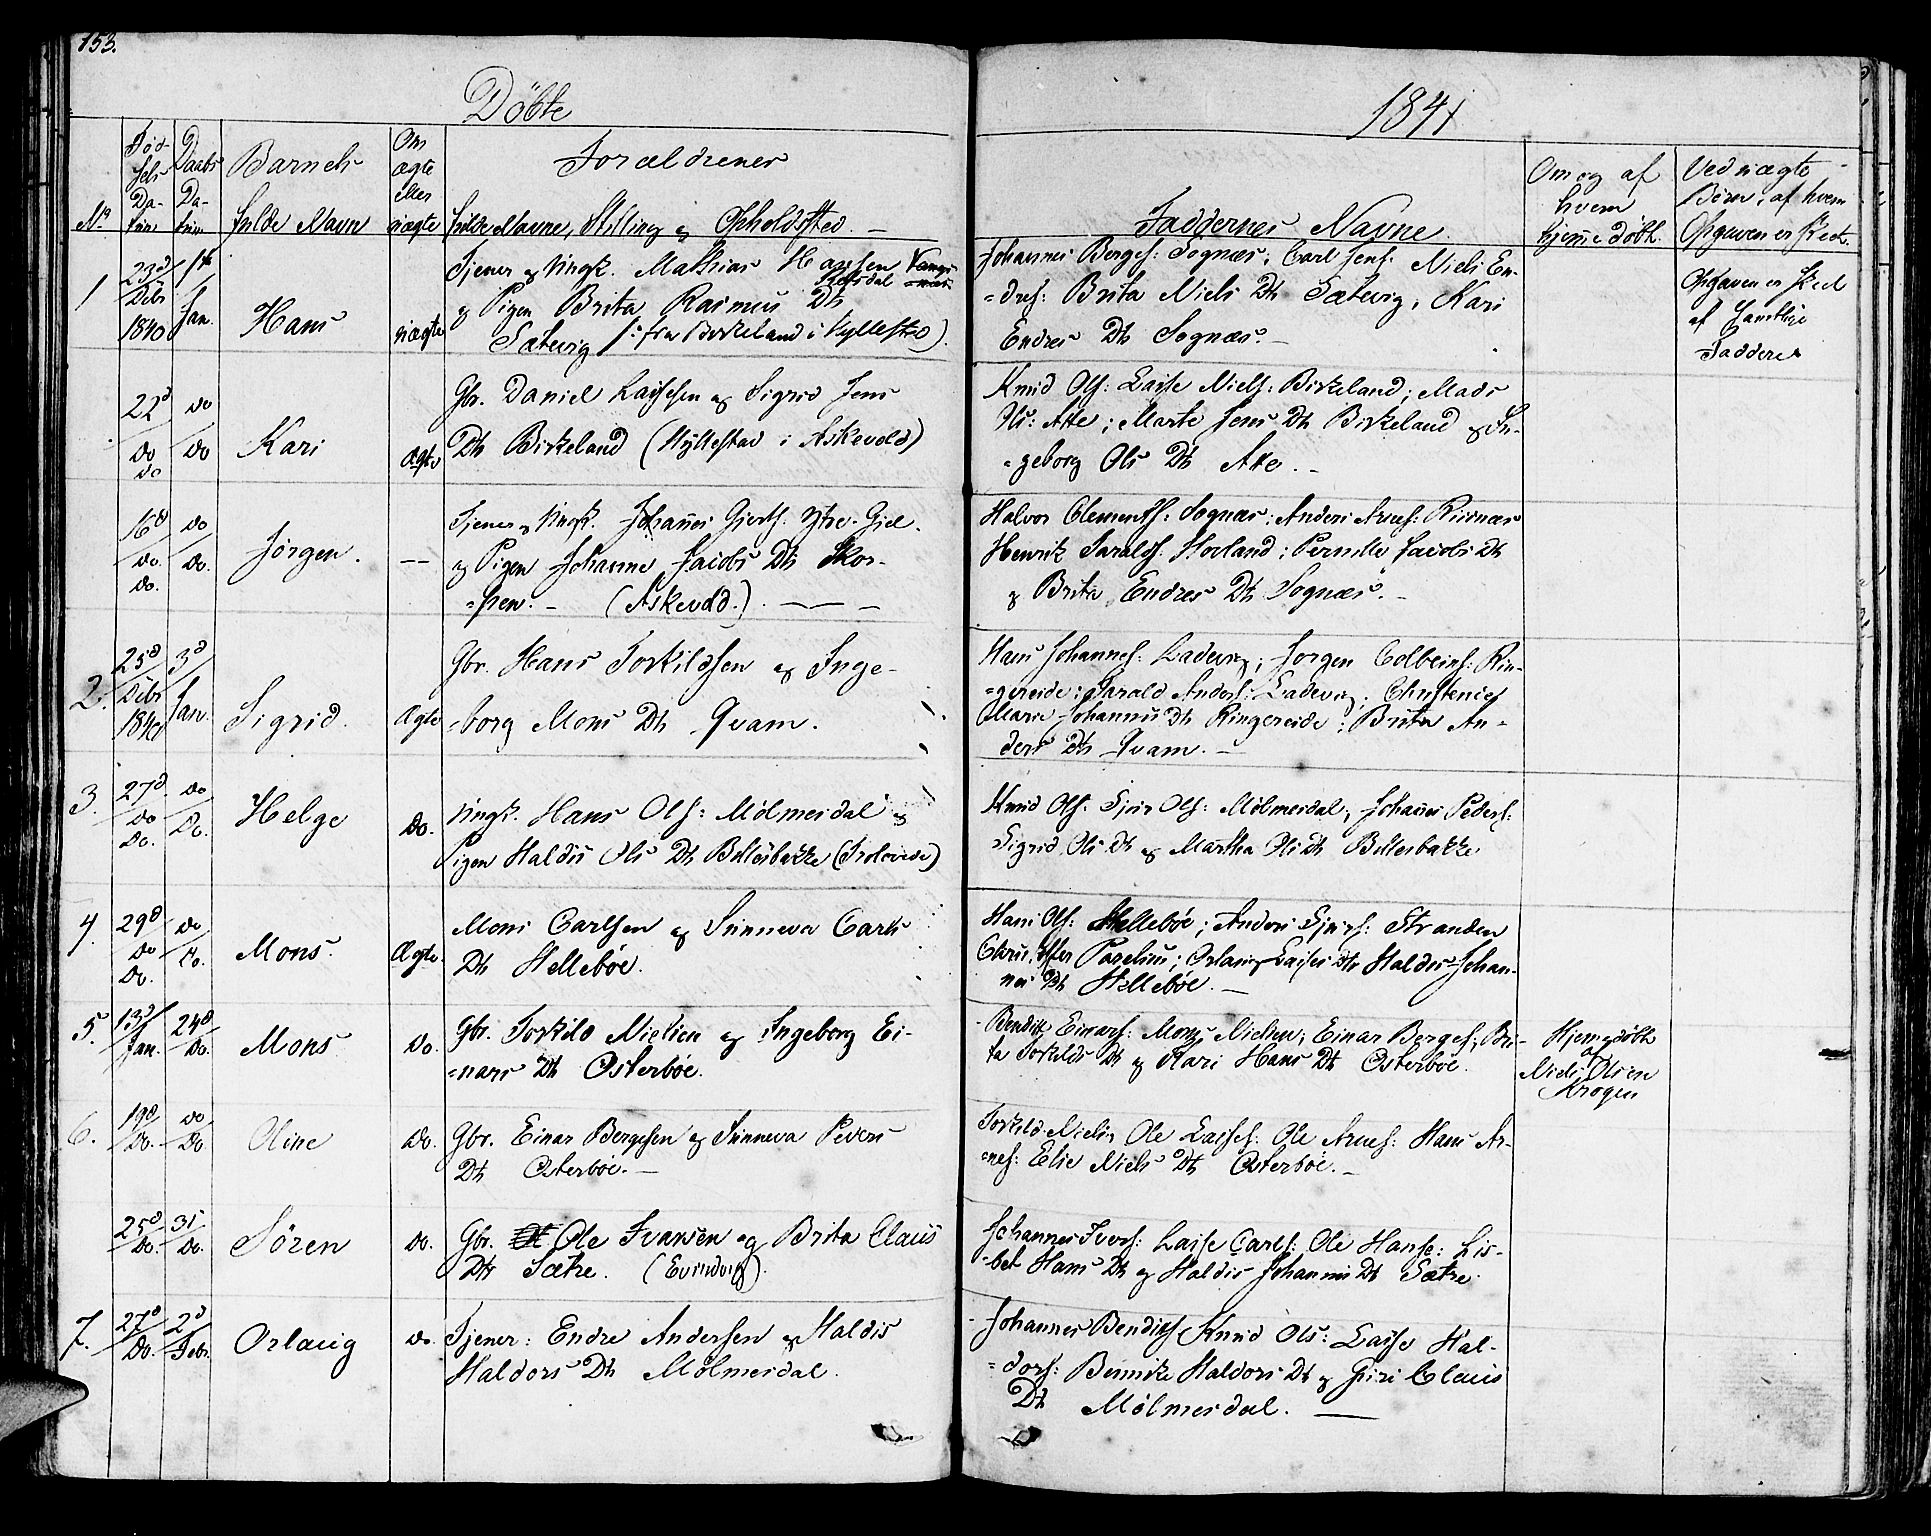 153.
Döbte
1841
No
Fødsels Datum
Daabs Datum
Barnets fulde Navn
Om ægte eller uægte
Forældrenes fulde Navne, Stilling og Opholdssted. —
Faddernes Navne
Om og af hvem hjemmedøbt.
Ved uægte Börn, af hvem Opgaven er skeet.
1
23d/Decbr 1840
1ste/Jan.
Hans
uægte
Tjener og Ungk. Mathias Hansen
og Pigen Brita Rasmus Dtr
Sætevig /: fra Birkeland i Hyllestad).
Johannes Berges: Sognæs; Carl Jens: Niels En-
=dres: Brita Niels Dtr Sætevig, Kari
Endres Dtr Sognæs. —
Opgaven er skeed
af samtlige
Faddere
22d/do do
do/do
Kari
Ægte
Gbr. Daniel Lassesen og Sigrid Jens
Dtr Birkeland (Hyllestad i Askevold)
Knud Ols: Lasse Niels: Birkeland; Mads
Ols: Akse; Marte Jens Dtr Birkeland og In-
=geborg Ols Dtr. —
16d/do do.
do/do.
Jörgen.
—
Tjener og Ungk. Johannes Gjerts: Ytre-
og Pigen Johanne Jacobs Dtr Skor-
=pen. — (Askevold.). — —
Halvor Clements: Sognæs; Anders Arnes: Riisnæs
Henrik Haralds: Hovland; Pernille Jacobs Dtr
og Brita Endres Dtr Sognæs. —
2.
25d/Decbr 1840
3d/Jan.
Sigrid.
Ægte
Gbr. Hans Torkildsen og Inge-
=borg Mons Dtr Qvam.
Hans Johannes: Ladevig; Jörgen Colbeins: Rin-
=gereide; Harald Anders: Ladevig; Christence
Marie Johannes Dtr Ringereide; Brita An-
ders Dtr Qvam. —
3.
27d/do do.
do/do.
Helge
do.
Ungk. Hans Ols: Mölmesdal og
Pigen Haldis Ols Dtr Böllesbakke
Knud Ols: Ols: Mölmesdal; Johannes Peders:
Sigrid Ols Dtr og Martha Ols Dtr Böllesbakke
4.
29d/do do.
do/do.
Mons.
Ægte.
Mons Carlsen og Sünneva Carls
Dtr Hellebøe.
Hans Ols: Hellebøe; Anders Stranden
Christoffer; Orlaug Lasses Dtr Haldis Johan-
nes Dtr Hellebøe. —
5.
13d/Jan.
24d/do.
Mons
do.
Gbr. Torkild Nielsen og Ingeborg Ei-
=nars Dtr Østerbøe.
Bendix Einars: Mons Nielsen; Einar Berges; Bri-
ta Torkilds Dtr og Kari Hans Dtr Østerbøe.
Hjemmedöbt
af
Niels Olsen
Krogen
6.
19d/do.
do/do
Oline
do.
Gbr. Einar Bergesen og Sünneva Peders
Dtr Østerbøe. —
Torkild Niels: Ole Lasses: Ole Arnes: Hans Ar-
=nes: Elie Niels Dtr Østerbøe. —
25d/do.
31/do.
Sören
do.
Gbr. Ole Ivarsen og Brita Claus
Dtr Sætre. (Evindvig).
Johannes Ivers: Lasse Carls: Ole Hanse: Lis-
=bet Hans Dtr og Haldis Johannes Dtr Sætre.
7.
27d/do.
2d/Febr.
Orlaug
do.
Tjener: Endre Andersen og Haldis
Haldors Dtr Mölmesdal.
Johannes Bendix: Knud Ols: Lasse Hal-
=dors: Bennike Haldors Dtr og Siri Claus
Dtr Mölmesdal. —